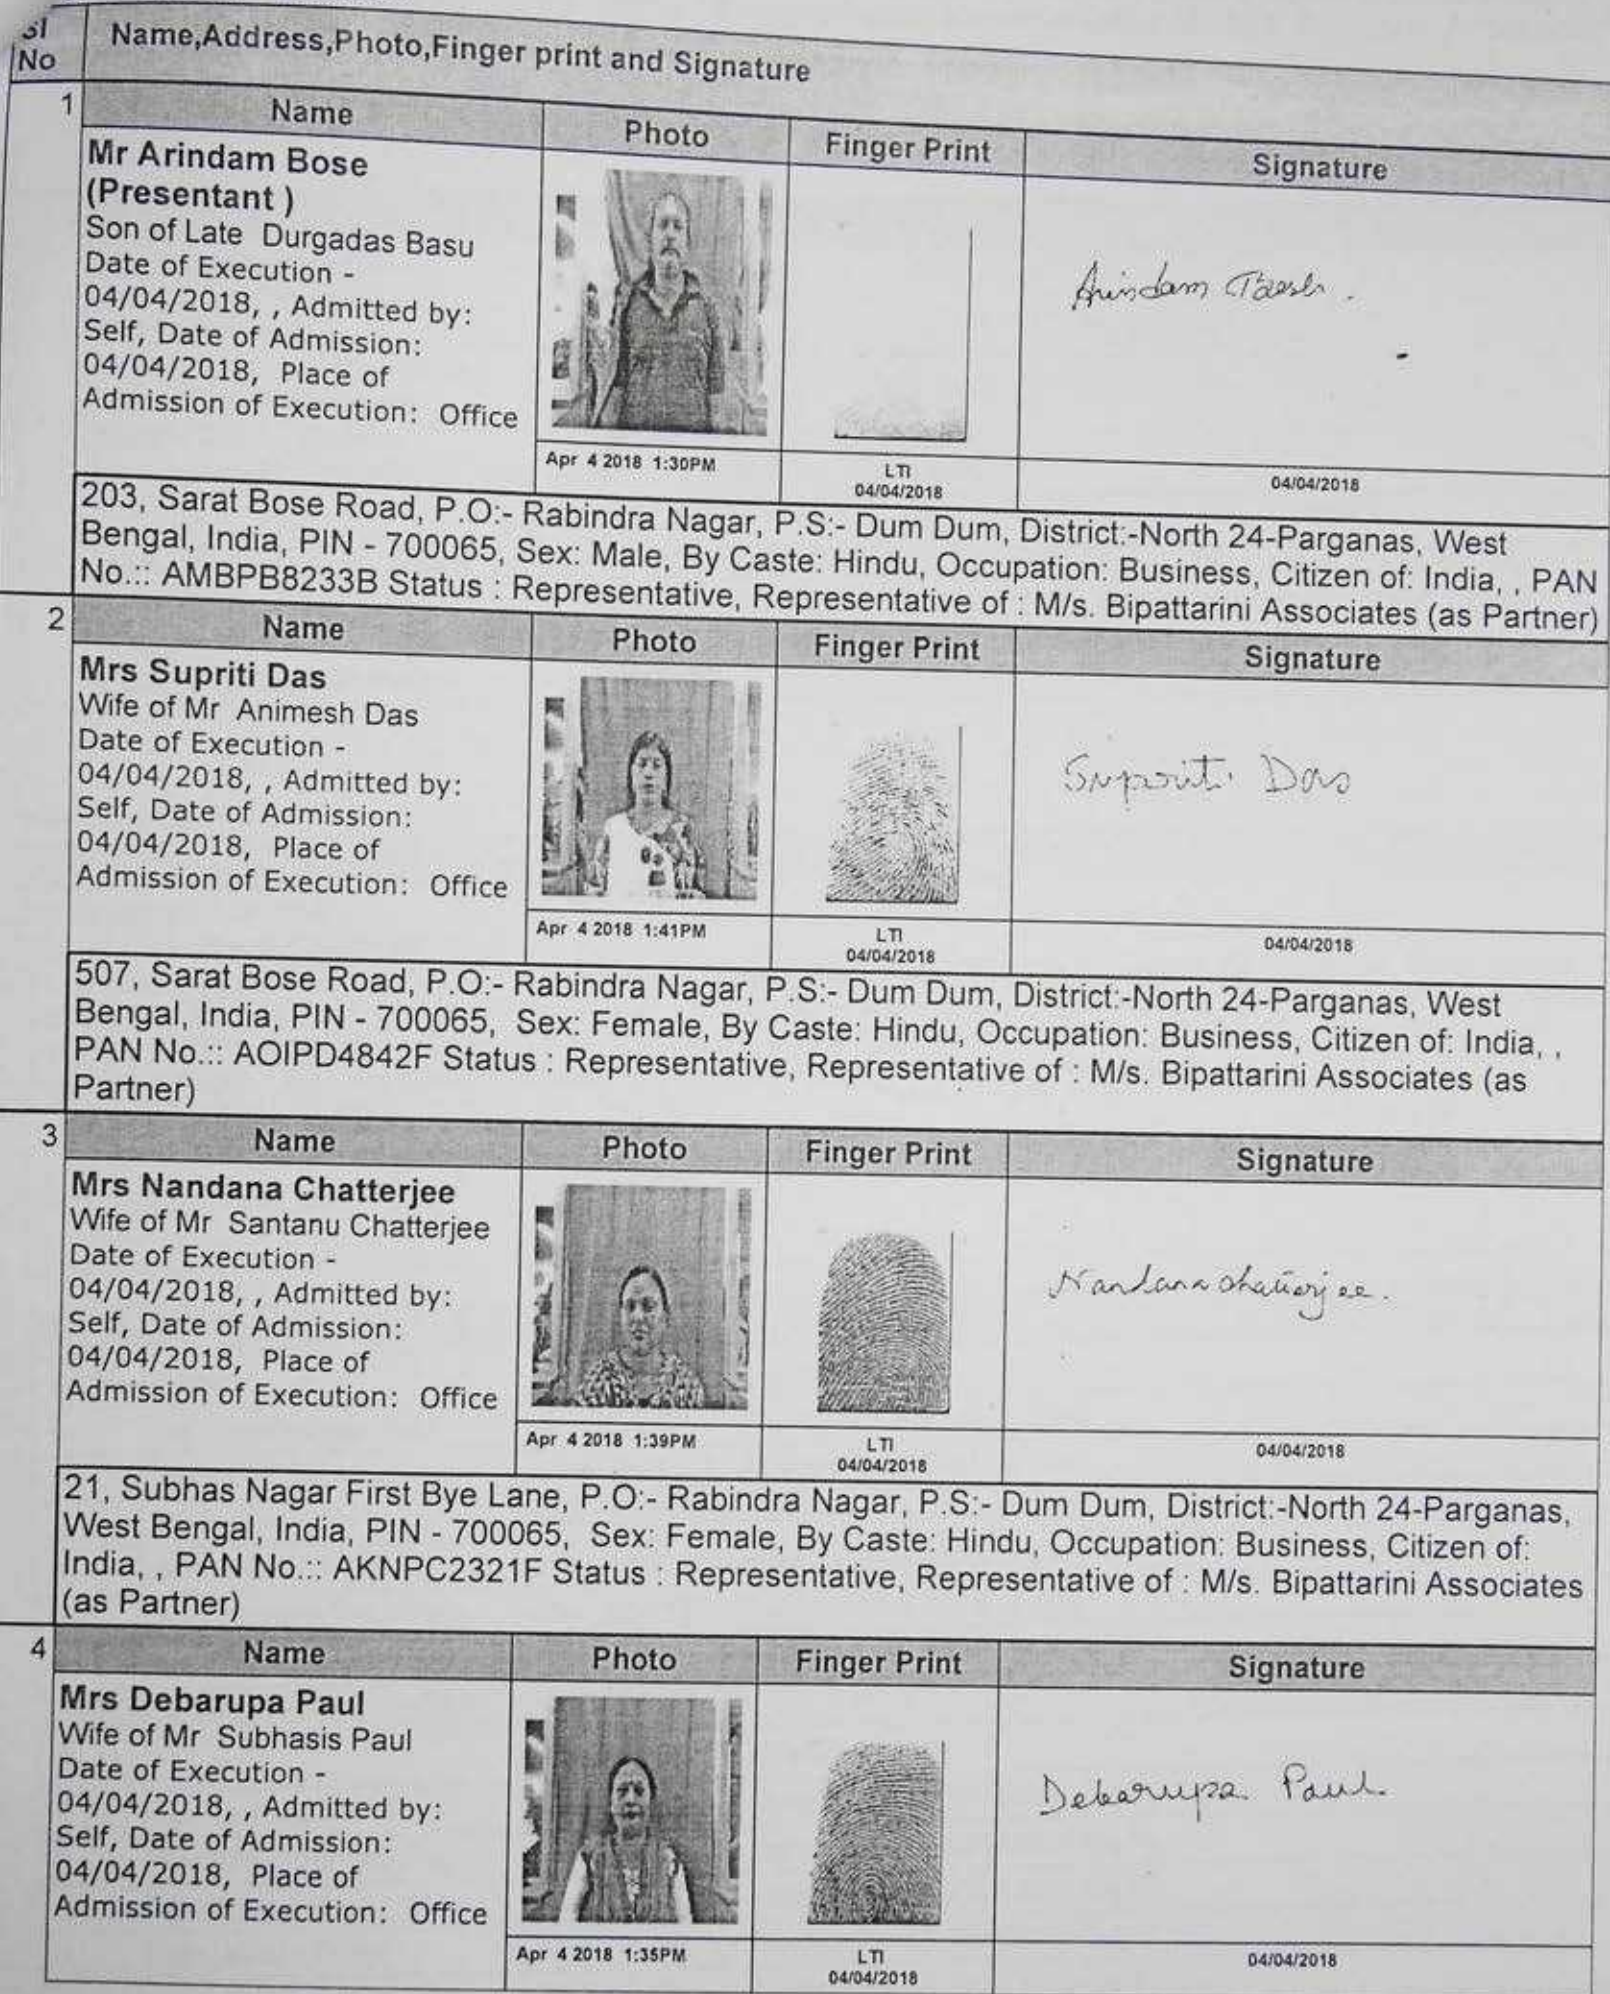 Sl
No
Name,Address,Photo,Finger print and Signature
1
Name
Photo
Finger Print
Signature
Mr Arindam Bose
(Presentant )
Son of Late Durgadas Basu
Date of Execution -
04/04/2018, , Admitted by:
Self, Date of Admission:
04/04/2018, Place of
Admission of Execution: Office
Arindam
Apr 4 2018 1:30PM
LTI
04/04/2018
04/04/2018
203, Sarat Bose Road, P.O:- Rabindra Nagar, P.S:- Dum Dum, District:-North 24-Parganas, West
Bengal, India, PIN - 700065, Sex: Male, By Caste: Hindu, Occupation: Business, Citizen of: India, , PAN
No.:: AMBPB8233B Status : Representative, Representative of : M/s. Bipattarini Associates (as Partner)
2
Name
Photo
Finger Print
Signature
Mrs Supriti Das
Wife of Mr Animesh Das
Date of Execution -
04/04/2018, , Admitted by:
Self, Date of Admission:
04/04/2018, Place of
Admission of Execution: Office
Supriti Das
Apr 4 2018 1:41PM
LTI
04/04/2018
04/04/2018
507, Sarat Bose Road, P.O:- Rabindra Nagar, P.S:- Dum Dum, District:-North 24-Parganas, West
Bengal, India, PIN - 700065, Sex: Female, By Caste: Hindu, Occupation: Business, Citizen of: India, ,
PAN No.:: AOIPD4842F Status : Representative, Representative of : M/s. Bipattarini Associates (as
Partner)
3
Name
Photo
Finger Print
Signature
Mrs Nandana Chatterjee
Wife of Mr Santanu Chatterjee
Date of Execution -
04/04/2018, , Admitted by:
Self, Date of Admission:
04/04/2018, Place of
Admission of Execution: Office
Nandana Chatterjee.
Apr 4 2018 1:39PM
LTI
04/04/2018
04/04/2018
21, Subhas Nagar First Bye Lane, P.O:- Rabindra Nagar, P.S:- Dum Dum, District:-North 24-Parganas,
West Bengal, India, PIN - 700065, Sex: Female, By Caste: Hindu, Occupation: Business, Citizen of:
India, , PAN No.:: AKNPC2321F Status : Representative, Representative of : M/s. Bipattarini Associates
(as Partner)
4
Name
Photo
Finger Print
Signature
Mrs Debarupa Paul
Wife of Mr Subhasis Paul
Date of Execution -
04/04/2018, , Admitted by:
Self, Date of Admission:
04/04/2018, Place of
Admission of Execution: Office
Debarupa Paul
Apr 4 2018 1:35PM
LTI
04/04/2018
04/04/2018